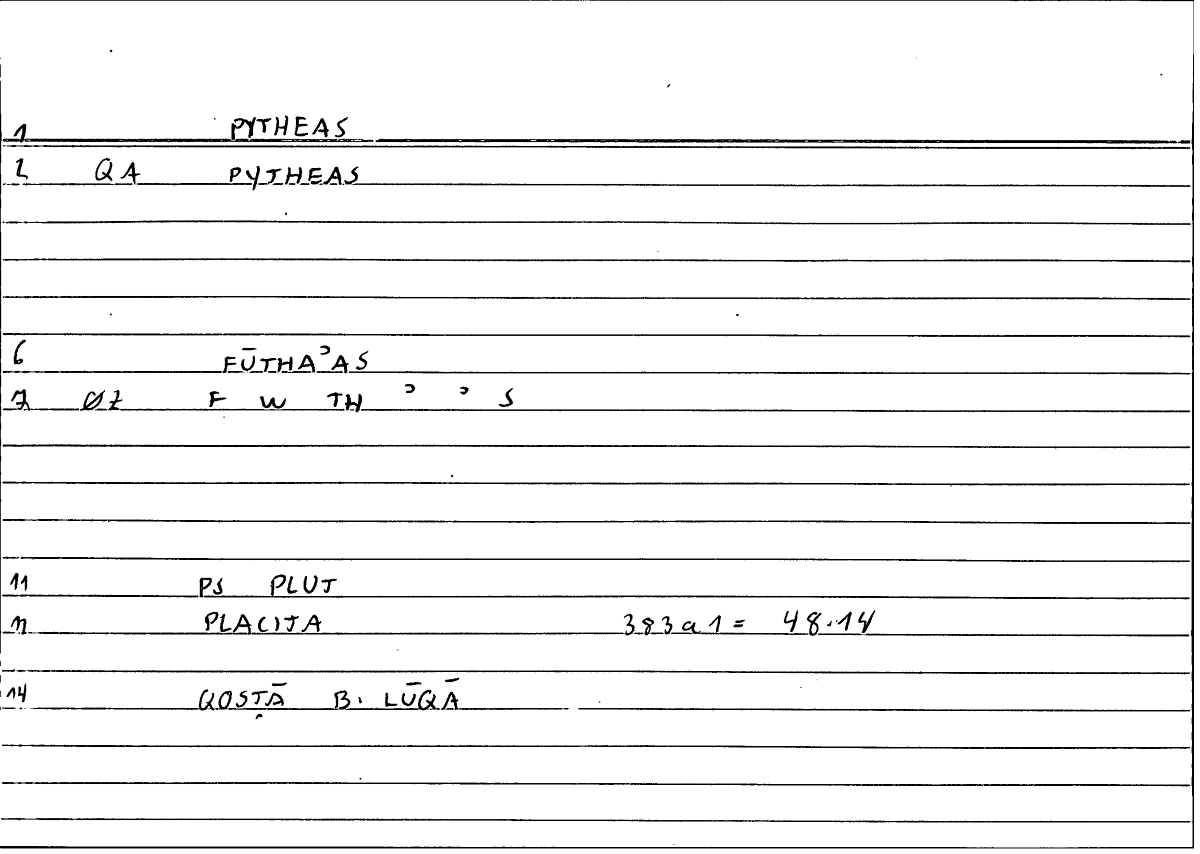 1 PYTHEAS
2 QA PYTHEAS
6 FŪTHAʾAS
7 ØZ F W TH ʾ ʾ S
11 PS PLUT
12 PLACITA 383a1 = 48.14
14 QOSṬĀ B. LŪQĀ